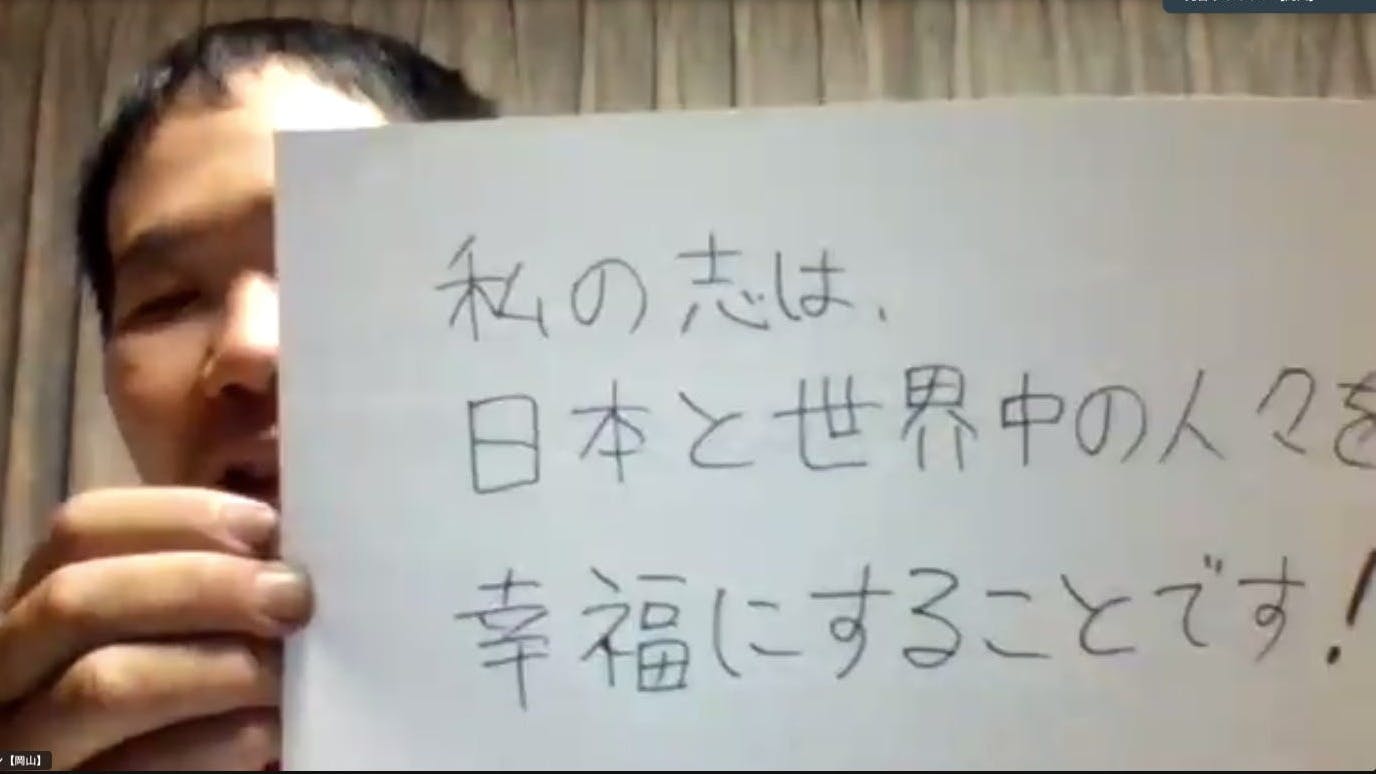 私の志は、
日本と世界中の人々を
幸福にすることです!
【岡山】